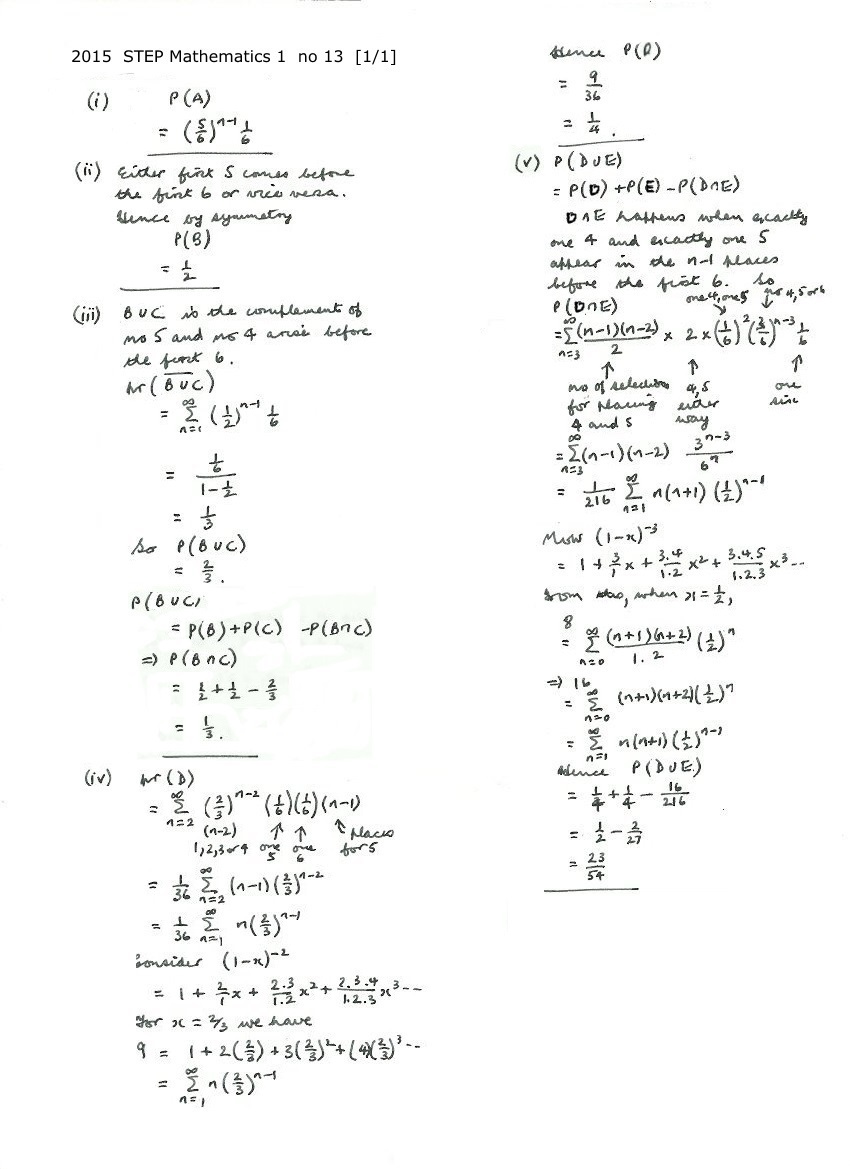 2015 STEP Mathematics 1 no 13 [1/1]
(i) P(A)
= (5/6)^(n-1) 1/6
(ii) Either first 5 comes before
the first 6 or vice versa.
Hence by symmetry
P(B)
= 1/2
(iii) B∪C is the complement of
no 5 and no 4 arise before
the first 6.
pr(\overline{B∪C})
= ∑_{n=1}^{∞} (1/2)^(n-1) 1/6
= (1/6)/(1-1/2)
= 1/3
So P(B∪C)
= 2/3.
P(B∪C)
= P(B)+P(C) -P(B∩C)
=> P(B∩C)
= 1/2 + 1/2 - 2/3
= 1/3.
(iv) pr(D)
= ∑_{n=2}^{∞} (2/3)^(n-2) (1/6)(1/6)(n-1)
(n-2) ↑ ↑ ↖ places
1,2,3 or 4 one one for 5
5 6
= 1/36 ∑_{n=2}^{∞} (n-1)(2/3)^(n-2)
= 1/36 ∑_{n=1}^{∞} n(2/3)^(n-1)
Consider (1-x)^(-2)
= 1 + 2/1 x + 2.3/1.2 x² + 2.3.4/1.2.3 x³ --
For x = 2/3 we have
9 = 1+2(2/3)+3(2/3)²+(4)(2/3)³--
= ∑_{n=1}^{∞} n(2/3)^(n-1)
Hence P(D)
= 9/36
= 1/4.
(v) P(D∪E)
= P(D) +P(E) -P(D∩E)
D∩E happens when exactly
one 4 and exactly one 5
appear in the n-1 places
before the first 6. So
P(D∩E) one 4, one 5 no 4, 5 or 6
= ∑_{n=3}^{∞} (n-1)(n-2)/2 × 2×(1/6)²(3/6)^(n-3) 1/6
↑ ↑ ↑
no of selections 4,5 one
for placing either six
4 and 5 way
= ∑_{n=3}^{∞} (n-1)(n-2) 3^(n-3)/6^n
= 1/216 ∑_{n=1}^{∞} n(n+1)(1/2)^(n-1)
Now (1-x)^(-3)
= 1 + 3/1 x + 3.4/1.2 x² + 3.4.5/1.2.3 x³--
from this, when x=1/2,
8
= ∑_{n=0}^{∞} (n+1)(n+2)/1.2 (1/2)^n
=> 16
= ∑_{n=0}^{∞} (n+1)(n+2)(1/2)^n
= ∑_{n=1}^{∞} n(n+1)(1/2)^(n-1)
Hence P(D∪E)
= 1/4 + 1/4 - 16/216
= 1/2 - 2/27
= 23/54